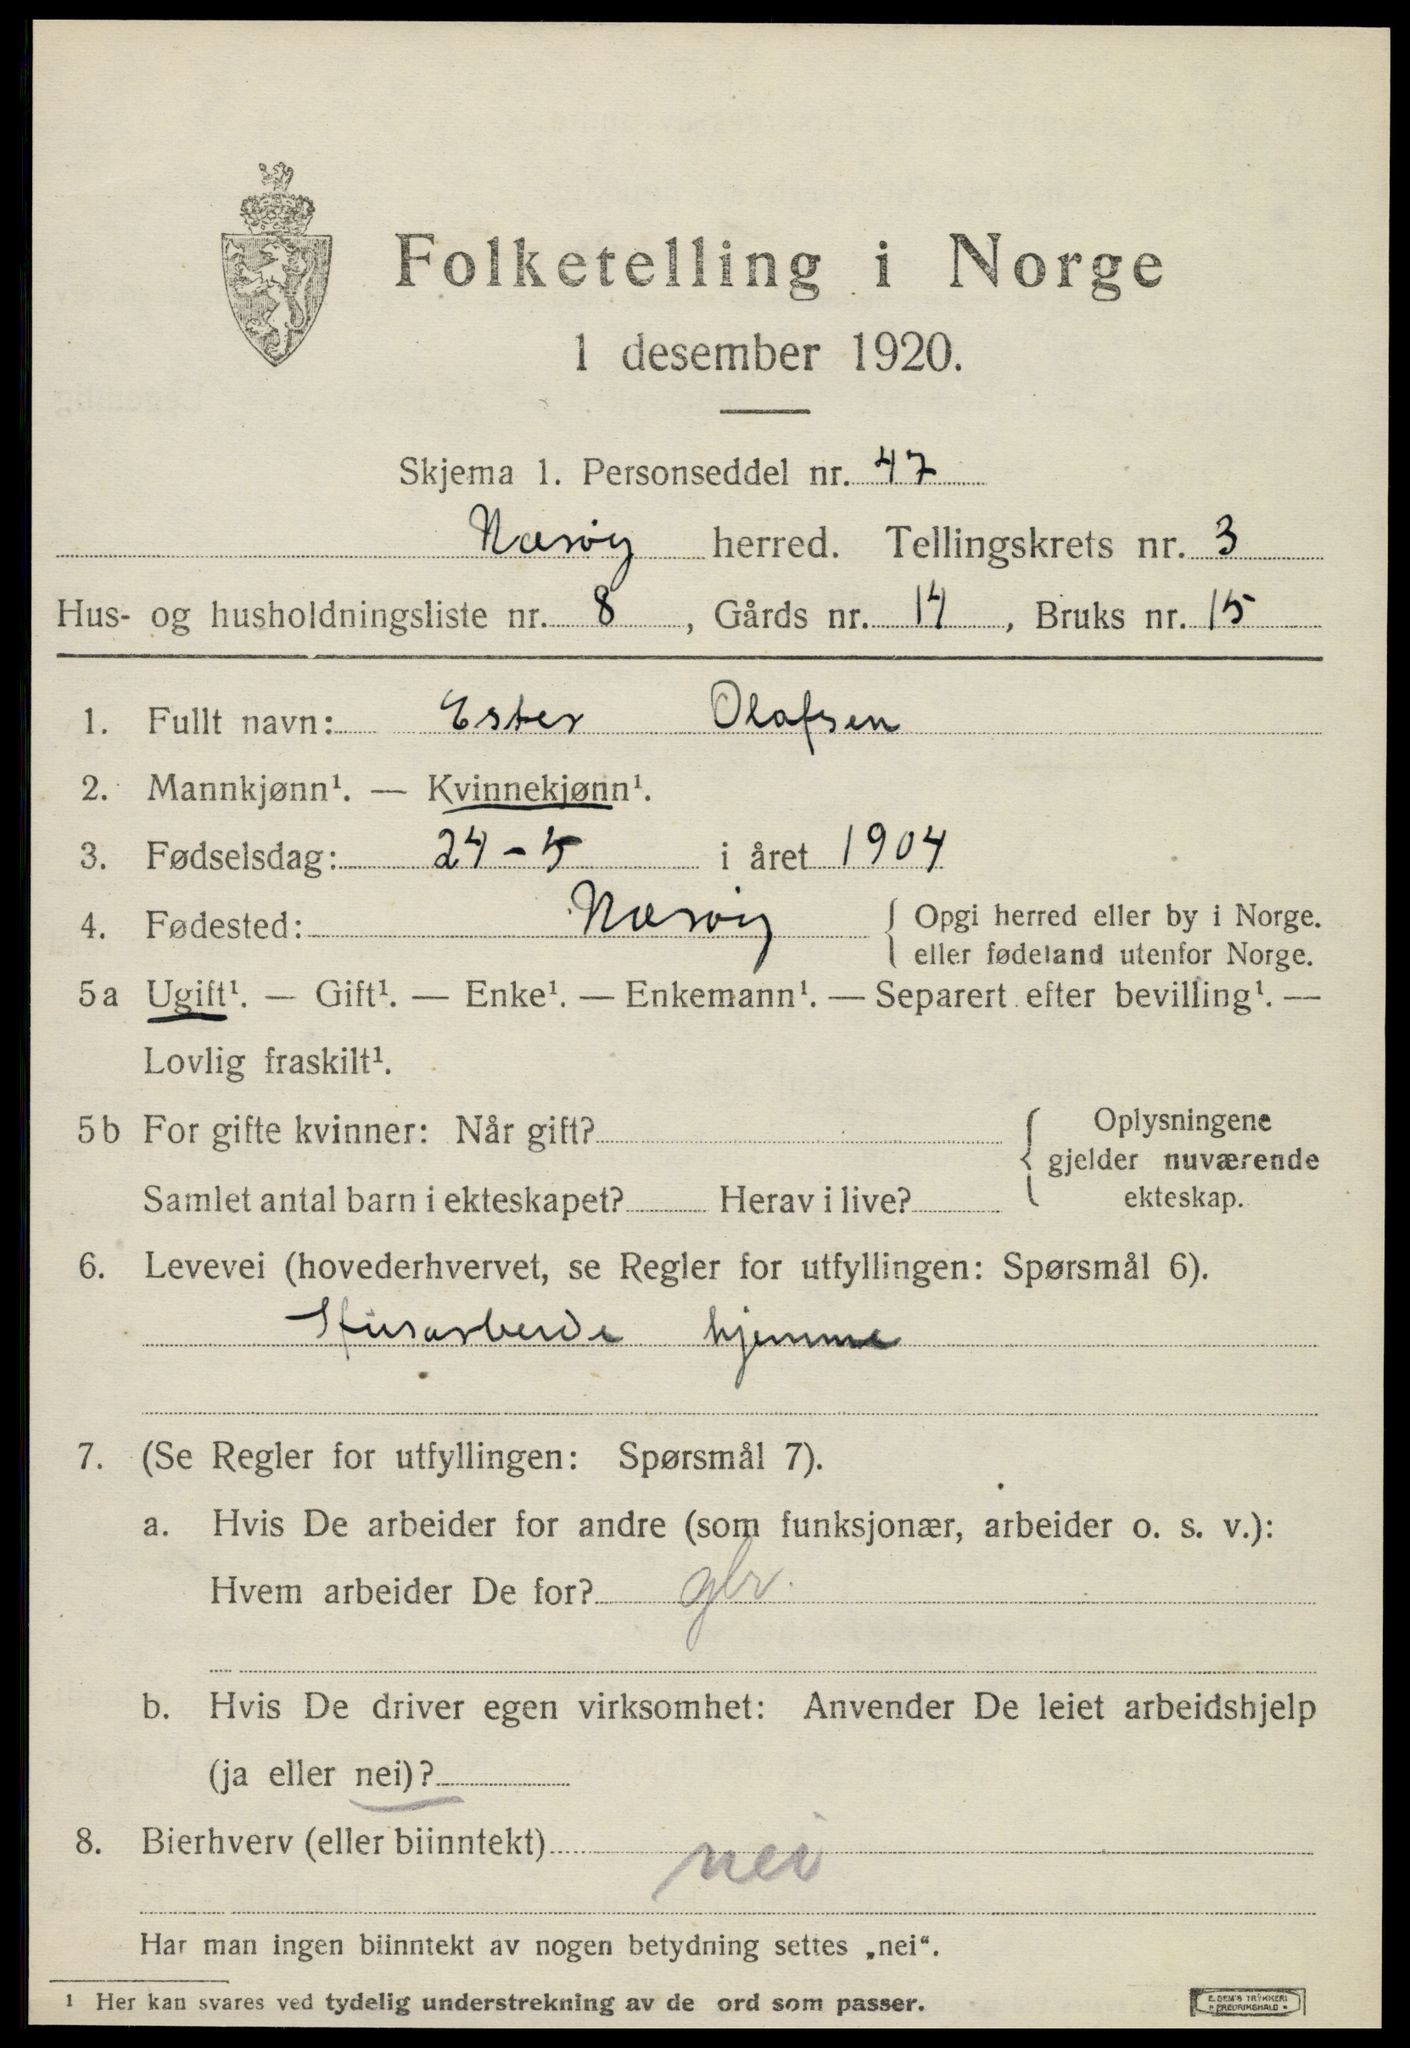 Folketelling i Norge
1 desember 1920.
Skjema 1. Personseddel nr. 47
Nærøy herred. Tellingskrets nr. 3
Hus- og husholdningsliste nr. 8, Gårds nr. 14, Bruks nr. 15
1. Fullt navn: Ester Olafsen
2. Mannkjønn¹. — Kvinnekjønn¹.
3. Fødselsdag: 24-5 i året 1904
4. Fødested: Nærøy { Opgi herred eller by i Norge.
eller fødeland utenfor Norge.
5a Ugift¹. — Gift¹. — Enke¹. — Enkemann¹. — Separert efter bevilling¹. —
Lovlig fraskilt¹.
5b For gifte kvinner: Når gift? { Oplysningene
gjelder nuværende
Samlet antal barn i ekteskapet? Herav i live? ekteskap.
6. Levevei (hovederhvervet, se Regler for utfyllingen: Spørsmål 6).
Husarbeide hjemme
7. (Se Regler for utfyllingen: Spørsmål 7).
a. Hvis De arbeider for andre (som funksjonær, arbeider o. s. v.):
Hvem arbeider De for? gbr.
b. Hvis De driver egen virksomhet: Anvender De leiet arbeidshjelp
(ja eller nei)?
8. Bierhverv (eller biinntekt) nei
Har man ingen biinntekt av nogen betydning settes „nei“.
¹ Her kan svares ved tydelig understrekning av de ord som passer.
E. SEM'S TRYKKERI
FREDRIKSHALD